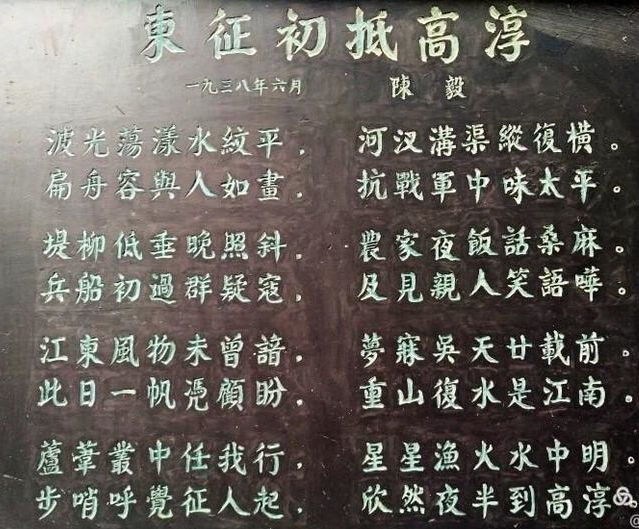 東征初抵高淳
一九三八年六月 陳毅
波光蕩漾水紋平，河汊溝渠縱復橫。
扁舟容與人如畫，抗戰軍中味太平。
堤柳低垂晚照斜，農家夜飯話桑麻。
兵船初過群疑寇，及見親人笑語嘩。
江東風物未曾諳，夢寐吳天廿載前。
此日一帆憑顧盼，重山復水是江南。
蘆葦叢中任我行，星星漁火水中明。
步哨呼覺征人起，欣然夜半到高淳